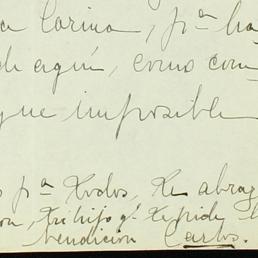 a Carina, pª ha
de aquí, como com
que imposible
s pª Xodos, Xe abraz
on, Xu hijo q.e Xe pide l
bendición Carlos.